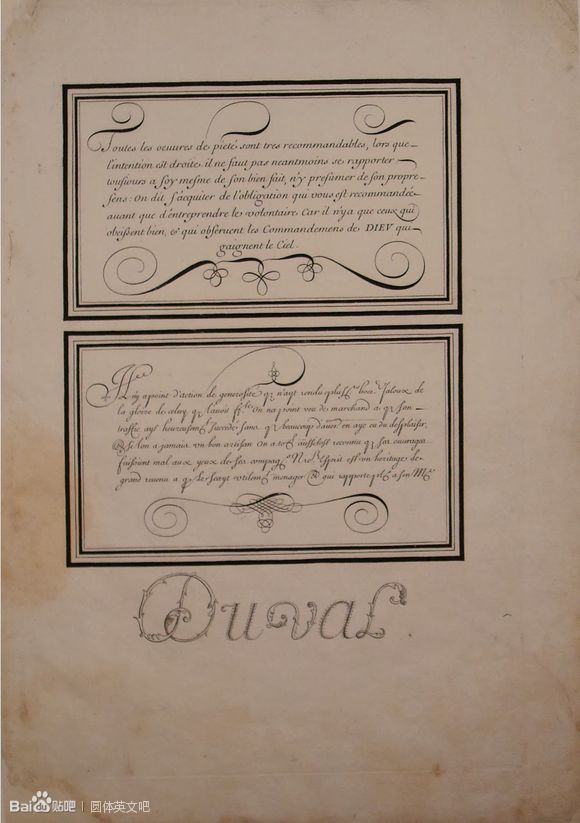 Toutes les oeuures de pieté sont tres recommandables, lors que
l'intention est droite il ne faut pas neantmoins se rapporter
tousiours a soy mesme de son bien fait, n'y presumer de son propre
sens: On dit s'acquier de l'obligation qui vous est recommandée
auant que d'entreprendre les volontaire Car il n'ya que ceux qui
obeissent bien, & qui obseruent les Commandemens de DIEV qui
gaignent le Ciel.
n'y a point d'action de generosité q n'ayt rendu plus Jaloux de
la gloire de celuy q l'auoit On n'a point veu de marchand a q son
traffic ayt heureusem succede sans q beaucoup d'autres en aye eu du desplaisir,
& Si l'on a jamais vn bon artisan On a tost aussitost reconnu q ses ouurages
faisoient mal aux yeux de ses compag l'Esprit est vn heritage de
grand reuenu a q le scayt vtilem menager & qui rapporte a son
Duval.
Bai du 贴吧 | 圆体英文吧